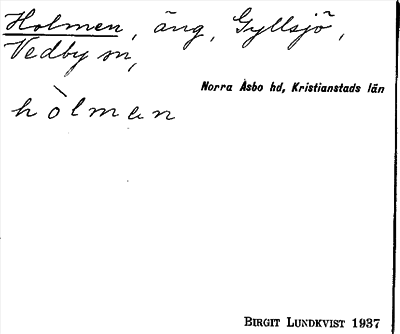 Holmen, äng, Gyllsjö,
Vedby sn,
Norra Åsbo hd, Kristianstads län
hòlmen
BIRGIT LUNDKVIST 1937